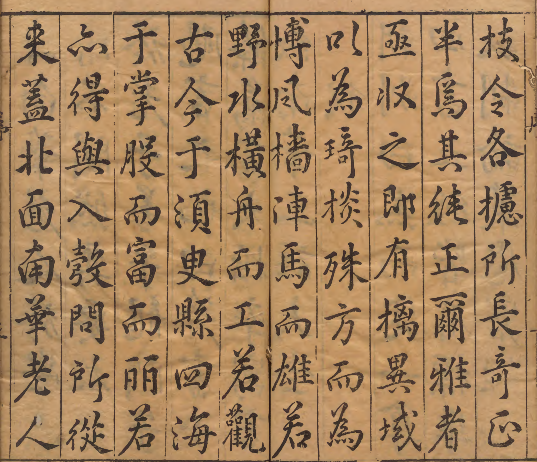 枝令各攄所長奇正
半焉其純正爾雅者
亟收之即有摛異域
以為琦棪殊方而為
博風檣連馬而雄若
野水橫舟而工若觀
古今于須臾縣四海
于掌股而富而丽若
亦得與入彀問所從
来蓋北面南華老人